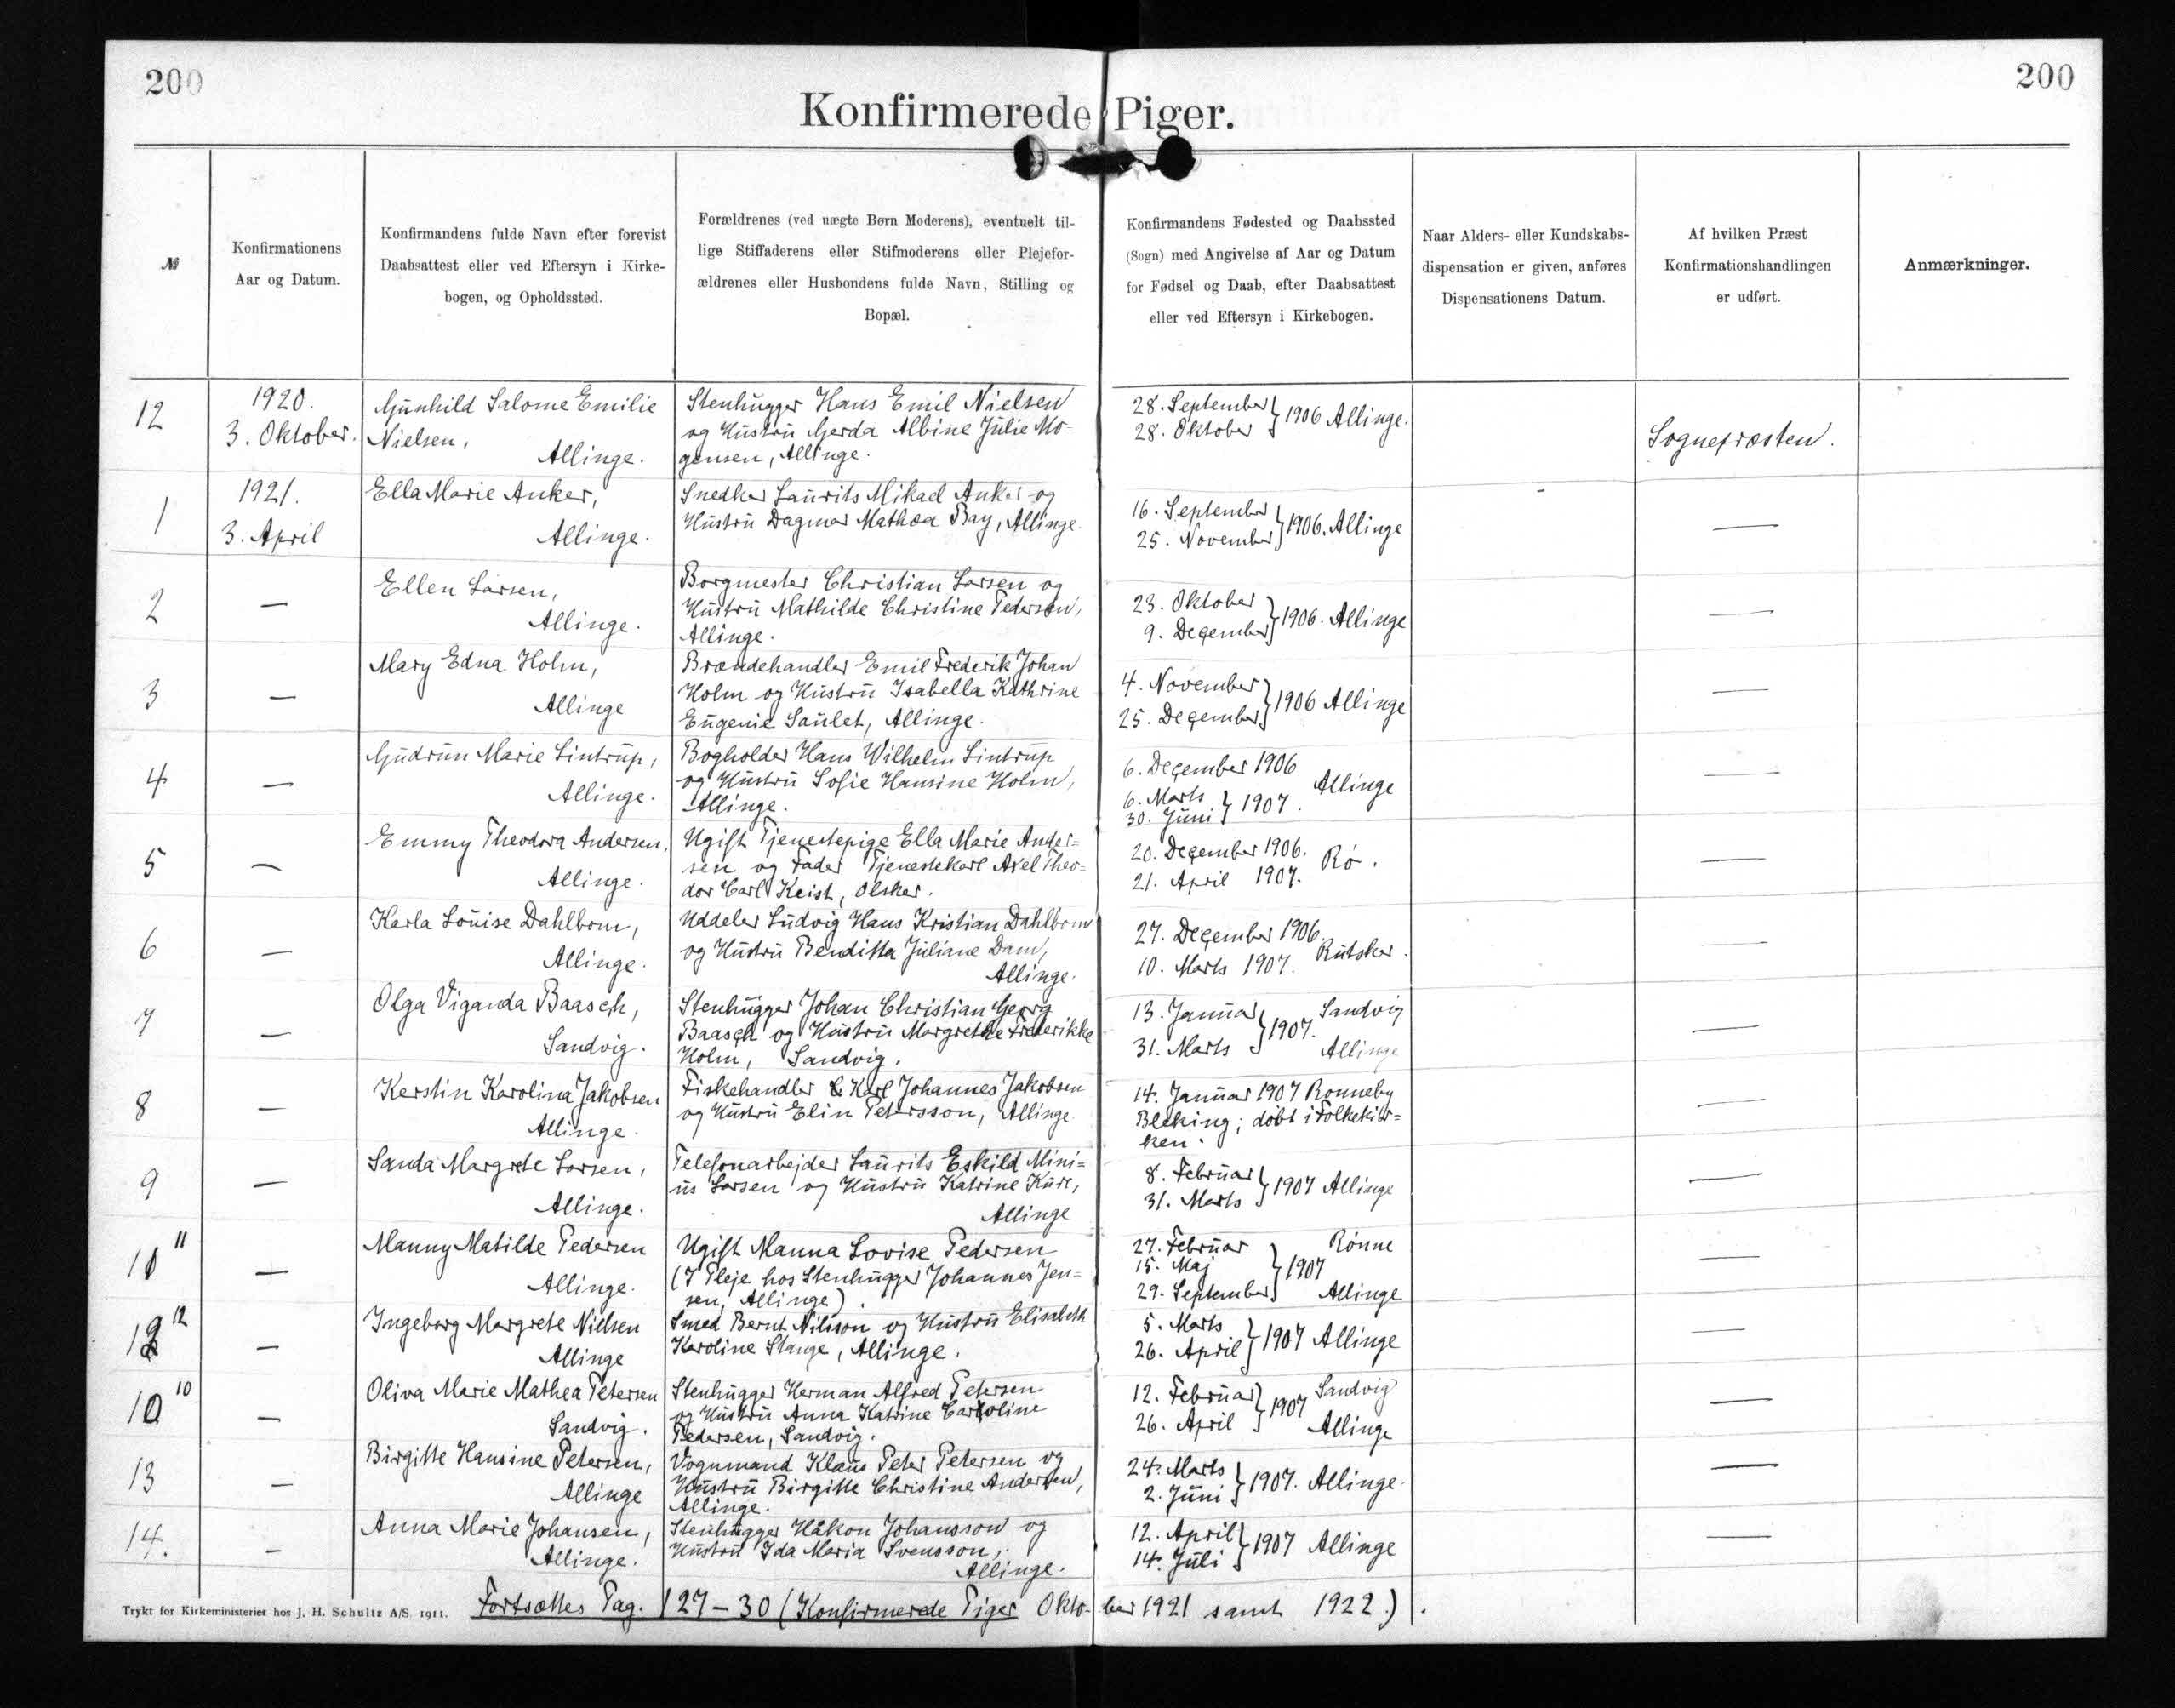 200
200
Konfirmerede Piger.
№
Konfirmationens
Aar og Datum.
Konfirmandens fulde Navn efter forevist
Daabsattest eller ved Eftersyn i Kirke-
bogen, og Opholdssted.
Forældrenes (ved uægte Børn Moderens), eventuelt til-
lige Stiffaderens eller Stifmoderens eller Plejefor-
ældrenes eller Husbondens fulde Navn, Stilling og
Bopæl.
Konfirmandens Fødested og Daabssted
(Sogn) med Angivelse af Aar og Datum
for Fødsel og Daab, efter Daabsattest
eller ved Eftersyn i Kirkebogen.
Naar Alders- eller Kundskabs-
dispensation er given, anføres
Dispensationens Datum.
Af hvilken Præst
Konfirmationshandlingen
er udført.
Anmærkninger.
12
1920.
3. Oktober.
Gunhild Salome Emilie
Nielsen,
Allinge.
Stenhugger Hans Emil Nielsen
og Hustru Gerda Albine Julie Mo=
gensen, Allinge.
28. September
28. Oktober } 1906 Allinge.
Sognepræsten.
1
1921.
3. April
Ella Marie Anker,
Allinge.
Snedker Laurits Mikael Anker og
Hustru Dagmar Mathea Bay, Allinge.
16. September
25. November } 1906. Allinge
—
2
—
Ellen Larsen,
Allinge.
Borgmester Christian Larsen og
Hustru Mathilde Christine Pedersen,
Allinge.
23. Oktober
9. December } 1906. Allinge
—
3
—
Mary Edna Holm,
Allinge
Brændehandler Emil Frederik Johan
Holm og Hustru Isabella Kathrine
Eugenie Saulet, Allinge.
4. November
25. December } 1906 Allinge
—
4
—
Gudrun Marie Lintrup,
Allinge.
Bogholder Hans Wilhelm Lintrup
og Hustru Sofie Hansine Holm,
Allinge.
6. December 1906
6. Marts
30. Juni } 1907. Allinge
—
5
—
Emmy Theodora Andersen,
Allinge.
Ugift Tjenestepige Ella Marie Ander=
sen og Fader Tjenestekarl Axel Theo=
dor Carl Keist, Olsker.
20. December 1906.
21. April 1907. Rø.
—
6
—
Karla Louise Dahlbom,
Allinge.
Uddeler Ludvig Hans Kristian Dahlbom
og Hustru Benditta Juliane Dam,
Allinge.
27. December 1906.
10. Marts 1907. Rutsker.
—
7
—
Olga Viganda Baasch,
Sandvig.
Stenhugger Johan Christian Georg
Baasch og Hustru Margrethe Frederikke
Holm, Sandvig.
13. Januar Sandvig
31. Marts } 1907. Allinge
—
8
—
Kerstin Karolina Jakobsen
Allinge.
Fiskehandler Karl Johannes Jakobsen
og Hustru Elin Petersson, Allinge.
14. Januar 1907 Ronneby
Bleking; døbt i Folkekir=
ken.
—
9
—
Sanda Margrete Larsen,
Allinge.
Telefonarbejder Laurits Eskild Mini=
us Larsen og Hustru Katrine Kure,
Allinge
8. Februar
31. Marts } 1907 Allinge
—
11
—
Manny Matilde Pedersen
Allinge.
Ugift Manna Lovise Pedersen
(I Pleje hos Stenhugger Johannes Jen=
sen, Allinge).
27. Februar Rønne
15. Maj } 1907
29. September Allinge
—
12
—
Ingeborg Margrete Nielsen
Allinge
Smed Bernt Nilsson og Hustru Elisabeth
Karoline Stange, Allinge.
5. Marts
26. April } 1907 Allinge
—
10 10
—
Oliva Marie Mathea Petersen
Sandvig.
Stenhugger Herman Alfred Petersen
og Hustru Anna Katrine Caroline
Pedersen, Sandvig.
12. Februar Sandvig
26. April } 1907 Allinge
—
13
—
Birgitte Hansine Petersen,
Allinge
Vognmand Klaus Peter Petersen og
Hustru Birgitte Christine Andersen,
Allinge.
24. Marts
2. Juni } 1907. Allinge.
—
14.
—
Anna Marie Johansen,
Allinge.
Stenhugger Håkon Johansson og
Hustru Ida Maria Svensson,
Allinge.
12. April
14. Juli } 1907 Allinge
—
Trykt for Kirkeministeriet hos J. H. Schultz A/S. 1911.
Fortsættes Pag. 127-30 (Konfirmerede Piger Okto-ber 1921 samt 1922.).